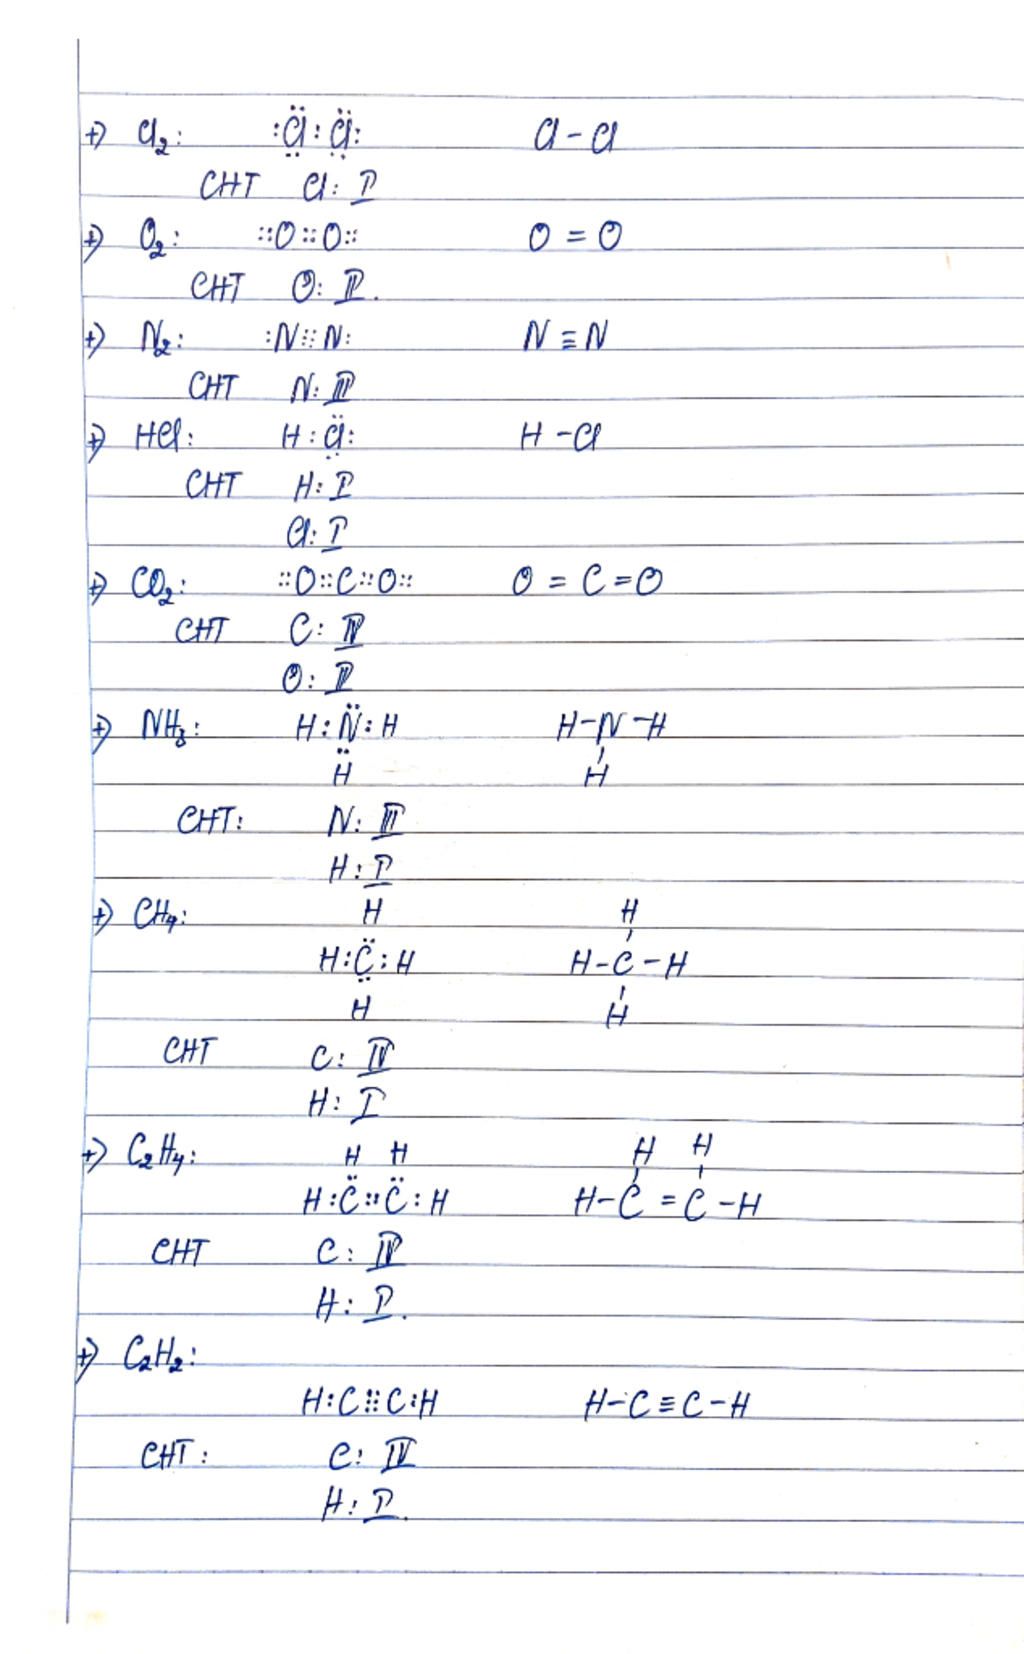 +) Cl₂: :C̈l:C̈l: Cl - Cl
CHT Cl: I
+) O₂: ::O::O:: O = O
CHT O: II.
+) N₂: :N:::N: N ≡ N
CHT N: III
+) HCl: H:C̈l: H - Cl
CHT H: I
Cl: I
+) CO₂: ::O::C::O:: O = C = O
CHT C: IV
O: II
+) NH₃: H:N̈:H H-N-H
H H
CHT: N: III
H: I
+) CH₄: H H
H:C̈:H H-C-H
H H
CHT C: IV
H: I
+) C₂H₄: H H H H
H:C̈::C̈:H H-C = C-H
CHT C: IV
H: I.
+) C₂H₂:
H:C:::C:H H-C≡C-H
CHT: C: IV
H: I.